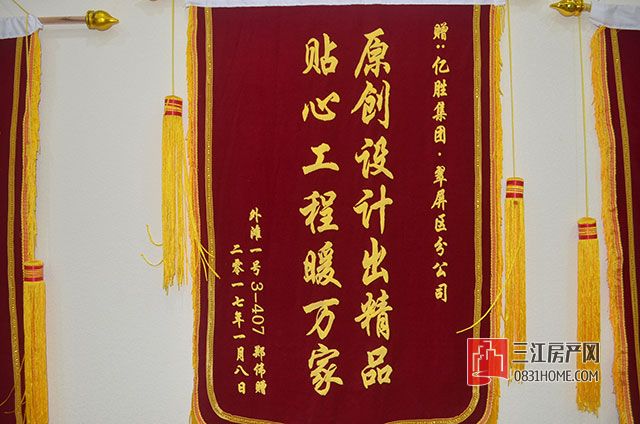 赠：亿胜集团·翠屏区分公司
原创设计出精品
贴心工程暖万家
外滩一号3-407 郑伟赠
二零一七年一月八日
三江房产网
0831HOME.COM